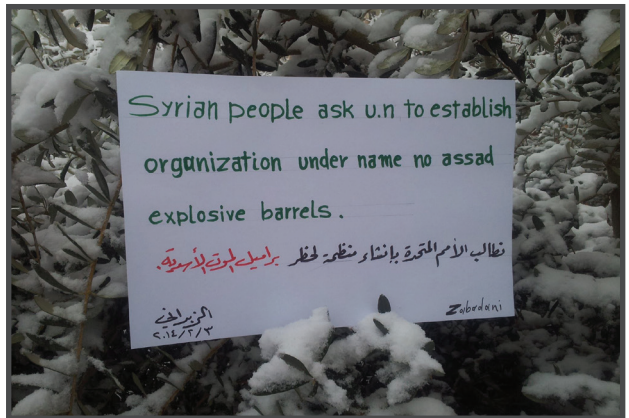 Syrian people ask u.n to establish
organization under name no assad
explosive barrels.
نطالب الأمم المتحدة بإنشاء منظمة لحظر براميل الموت الأسدية.
Zabadani
الزبداني
٢٠١٤/٢/٣